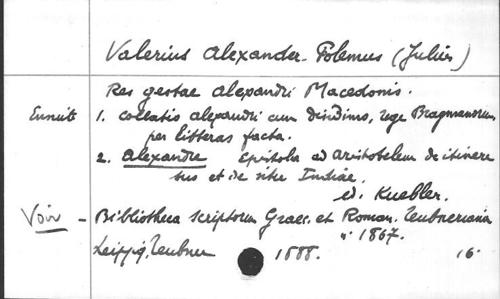 Valerius Alexander Polemus (Julius)
Res gestae Alexandri Macedonis.
Ensuit 1. Collatio Alexandri cum Dindimo, rege Bragmanorum,
per litteras facta.
2. Alexandre Epistola ad Aristotelem de itinere
suo et de situ Indiae.
ed. Kuebler.
Voir - Bibliotheca Scriptorum Graec. et Roman. Teubneriana
n° 1867.
Leipzig, Teubner 1888. 16.